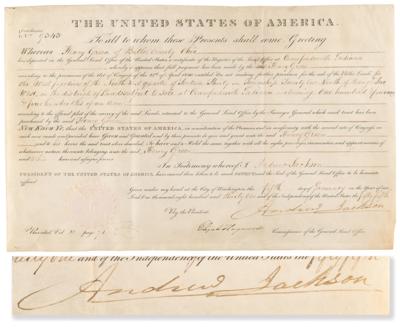 THE UNITED STATES OF AMERICA.
To all to whom these Presents shall come Greeting
Whereas Henry Green of Butler County Ohio
has deposited in the General Land Office of the United States, a certificate of the Register of the Land Office at Crawfordsville Indiana
whereby it appears that full payment has been made by the said Henry Green
according to the provisions of the Act of Congress of the 24th of April 1820 entitled An act making further provision for the sale of the Public Lands for
the West fraction of the South East quarter of Section Thirty in Township Twenty two North of Range
West, in the District of Lands subject to sale at Crawfordsville Indiana containing one hundred
according to the official plat of the survey of the said Lands, returned to the General Land Office by the Surveyor General, which said tract has been
purchased by the said Henry Green
NOW KNOW YE that the UNITED STATES OF AMERICA, in consideration of the Premises, and in conformity with the several acts of Congress in
such case made and provided have Given and Granted and by these presents do give and grant unto the said Henry Green
and to his heirs the said tract above described, To have and to Hold the same together with all the rights, privileges, immunities and appurtenances of
whatsoever nature thereunto belonging unto the said Henry Green
and to his heirs and assigns forever
In Testimony whereof I, Andrew Jackson
PRESIDENT OF THE UNITED STATES OF AMERICA, have caused these Letters to be made Patent and the Seal of the General Land Office to be hereunto
affixed
Given under my hand at the City of Washington the fifth day of January in the Year of our
Lord One thousand eight hundred and thirty one and of the Independence of the United States the fifty fifth
By the President
Andrew Jackson
Elijah Hayward Commissioner of the General Land Office
Recorded Vol page
thirty one and of the Independence of the United States the fifty fifth
Andrew Jackson